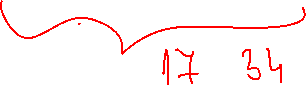 17 34